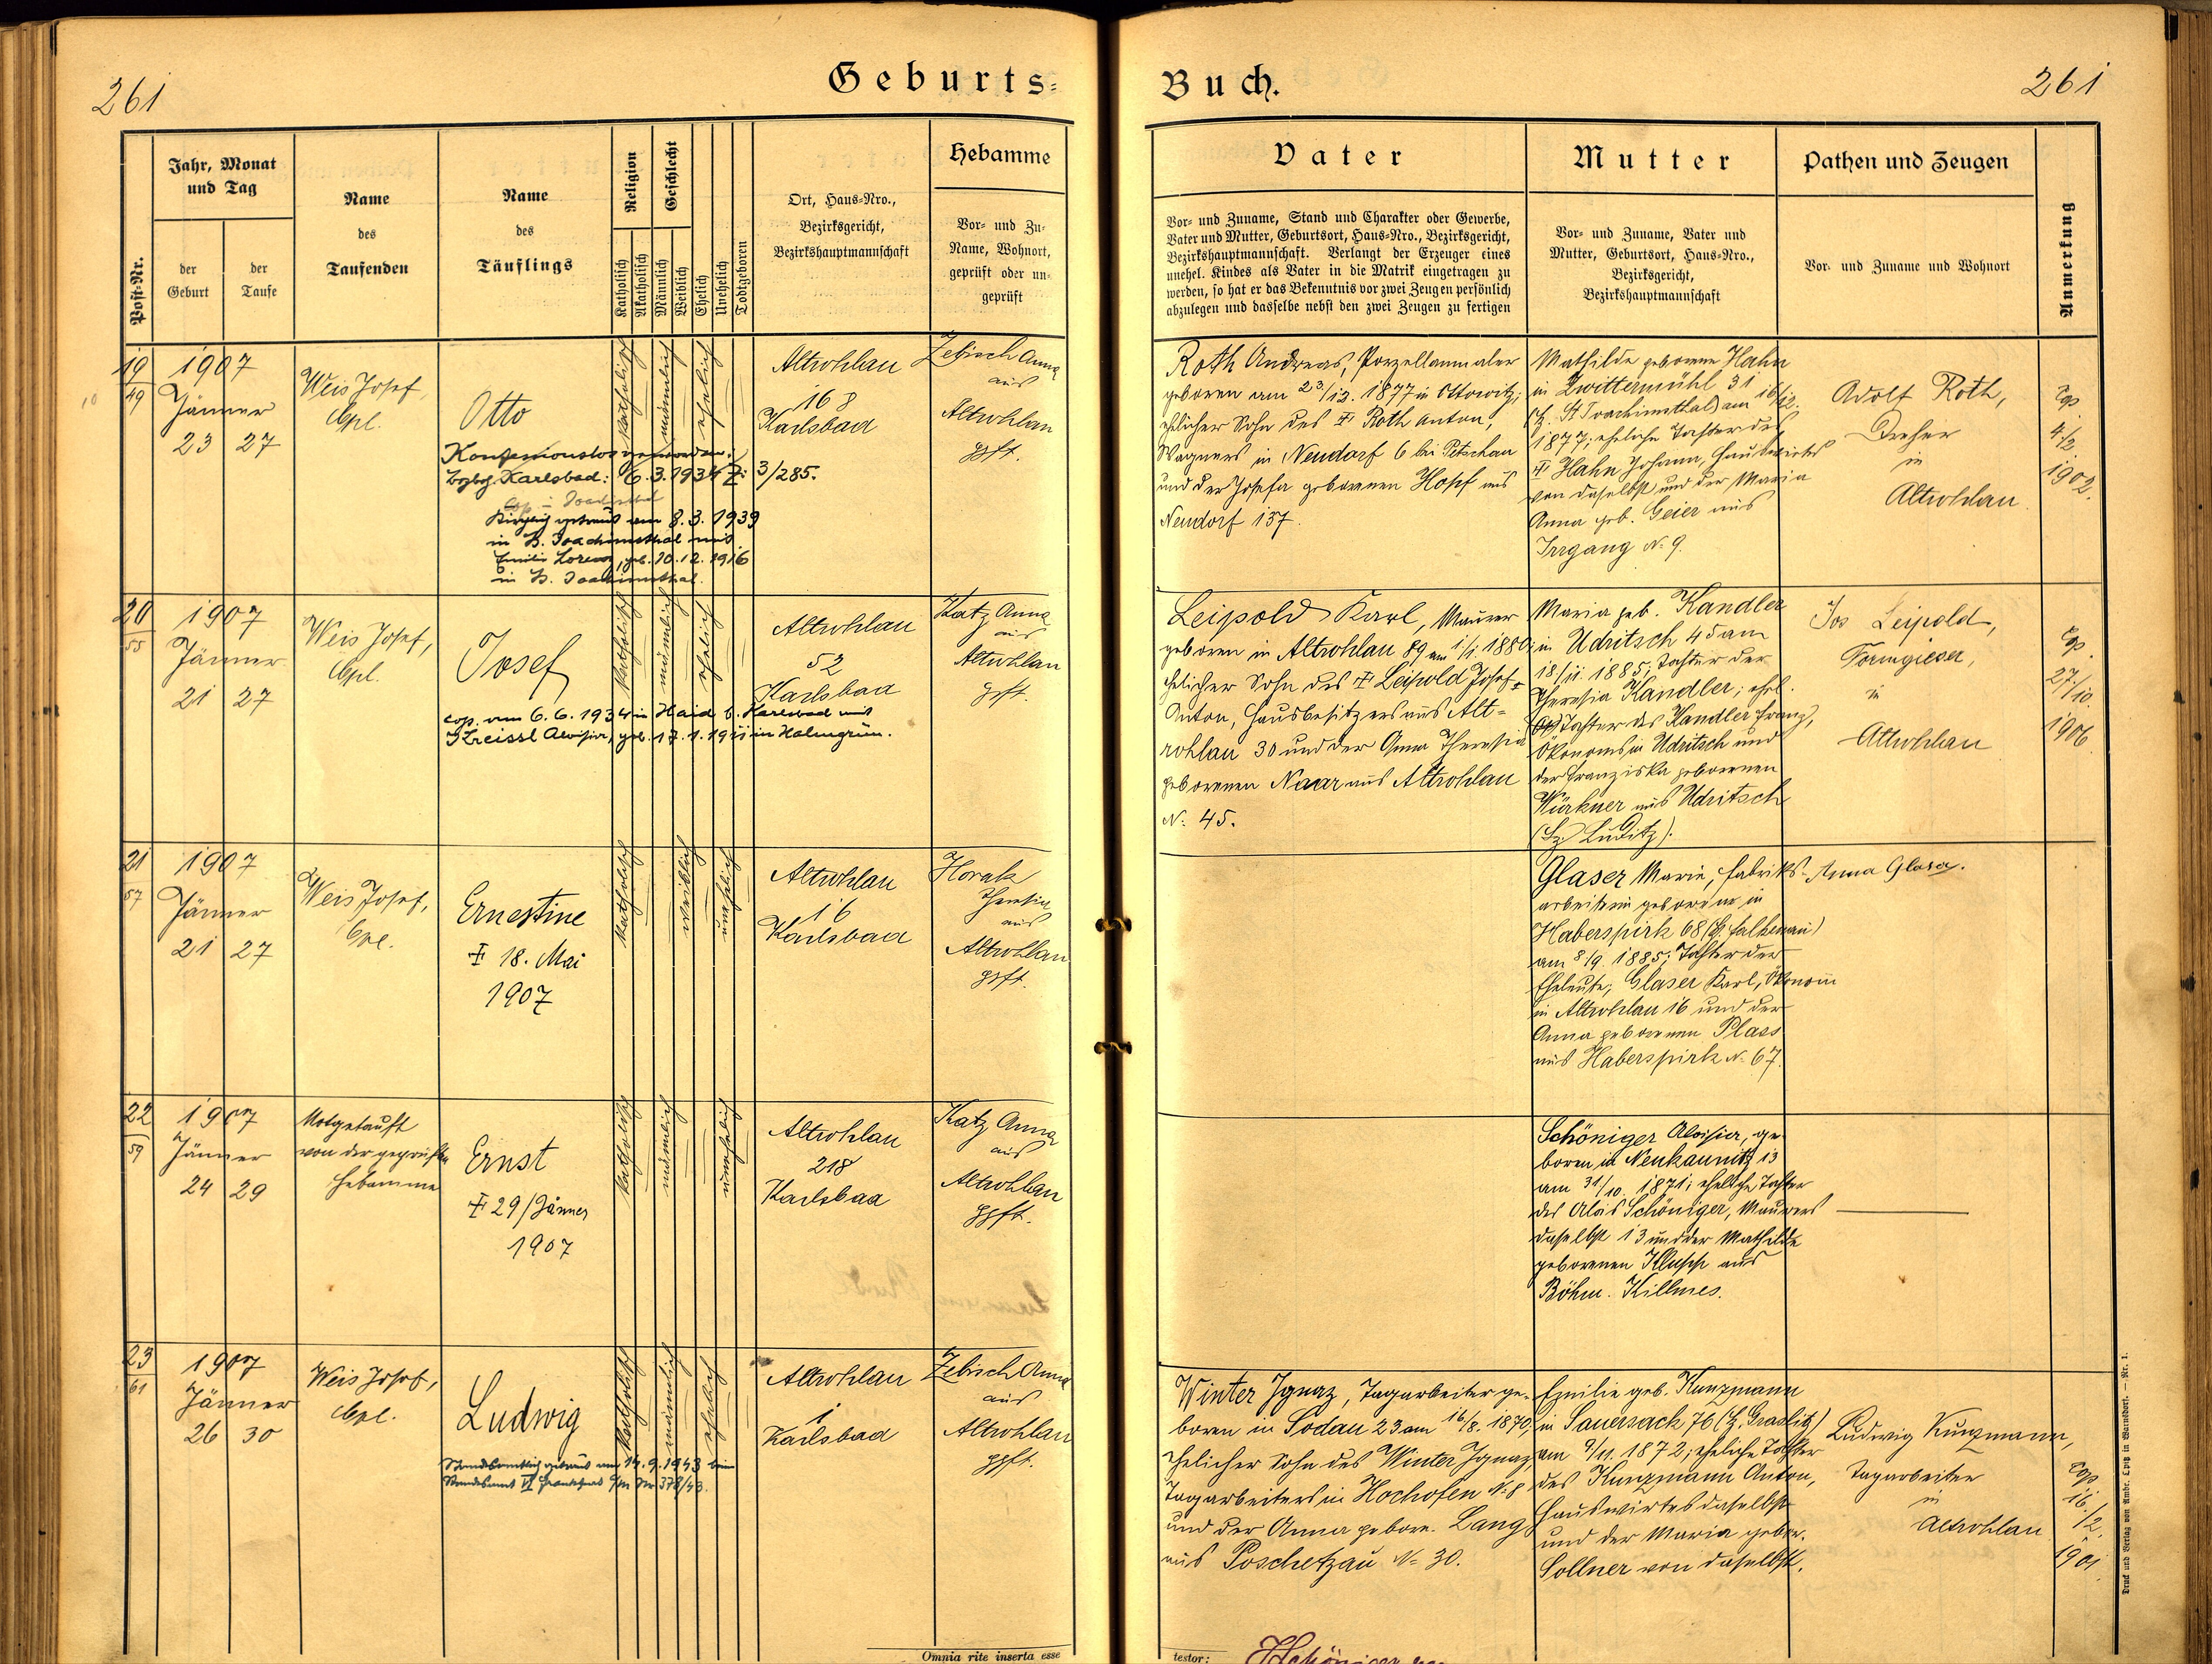 261
Geburts-
Buch.
261
Post-Nr.
Jahr, Monat
und Tag
der
Geburt
der
Taufe
Name
des
Taufenden
Name
des
Täuflings
Religion
Katholisch
Akatholisch
Geschlecht
Männlich
Weiblich
Ehelich
Unehelich
Todtgeboren
Ort, Haus-Nro.,
Bezirksgericht,
Bezirkshauptmannschaft
Hebamme
Vor- und Zu-
Name, Wohnort,
geprüft oder un-
geprüft
Vater
Vor- und Zuname, Stand und Charakter oder Gewerbe,
Vater und Mutter, Geburtsort, Haus-Nro., Bezirksgericht,
Bezirkshauptmannschaft. Verlangt der Erzeuger eines
unehel. Kindes als Vater in die Matrik eingetragen zu
werden, so hat er das Bekenntnis vor zwei Zeugen persönlich
abzulegen und dasselbe nebst den zwei Zeugen zu fertigen
Mutter
Vor- und Zuname, Vater und
Mutter, Geburtsort, Haus-Nro.,
Bezirksgericht,
Bezirkshauptmannschaft
Pathen und Zeugen
Vor- und Zuname und Wohnort
Anmerkung
19
49
1907
Jänner
23 27
Weis Josef,
Cpl.
Otto
Konfessionslos geworden.
Karlsbad: 6.3.1934 Z: 3/285.
Kirchlich getraut am 8.3.1939
in St. Joachimsthal mit
Emilie Lorenz, geb. 10.12.1916
in St. Joachimsthal.
katholisch
männlich
ehelich
Altrohlau
168
Karlsbad
Zebisch Anna
aus
Altrohlau
gpft.
Roth Andreas, Porzellanmaler
geboren am 23/12. 1877 in Ottowitz;
ehelicher Sohn des ‡ Roth Anton,
Wagners in Neudorf 6 bei Petschau
und der Josefa geborenen Hopf aus
Neudorf 137.
Mathilde geborene Hahn
in Zwittermühl 31
(Bz. St Joachimsthal) am 16/12.
1877; eheliche Tochter des
‡ Hahn Johann, Hauswirtes
von daselbst und der Maria
Anna geb. Geier aus
Irrgang N. 9.
Adolf Roth,
Dreher
in
Altrohlau
cop
4/2
1902.
20
55
1907
Jänner
21 27
Weis Josef,
Cpl.
Josef
cop. am 6.6.1934 in Haid b. Karlsbad mit
Kreissl Aloisia, geb. 17.1.1911 in Halmgrün.
katholisch
männlich
ehelich
Altrohlau
52
Karlsbad
Katz Anna
aus
Altrohlau
gpft.
Leipold Karl, Maurer
geboren in Altrohlau 89 am 1/1. 1880;
ehelicher Sohn des ‡ Leipold Josef
Anton, Hausbesitzers aus Alt-
rohlau 30 und der Anna Theresia
geborenen Naar aus Altrohlau
N. 45.
Maria geb. Kandler
in Udritsch 45 am
18/11. 1885; Tochter der
Theresia Kandler; ehel.
Tochter des Kandler Franz,
Ökonoms in Udritsch und
der Franziska geborenen
Würkner aus Udritsch
(Bz. Luditz).
Jos Leipold,
Formgieser,
in
Altrohlau
cop.
27/10.
1906
21
57
1907
Jänner
21 27
Weis Josef,
Cpl.
Ernestine
‡ 18. Mai
1907
katholisch
weiblich
unehelich
Altrohlau
16
Karlsbad
Horak
Theresia
aus
Altrohlau
gpft.
Glaser Marie, Fabriks-
arbeiterin geboren in
Haberspirk 68 (Bz. Falkenau)
am 8/9. 1885; Tochter der
Eheleute; Glaser Karl, Ökonom
in Altrohlau 16 und der
Anna geborenen Plass
aus Haberspirk N. 67.
Anna Glaser.
22
59
1907
Jänner
24 29
Notgetauft
von der geprüften
Hebamme
Ernst
‡ 29/Jänner
1907
katholisch
männlich
unehelich
Altrohlau
218
Karlsbad
Katz Anna
aus
Altrohlau
gpft.
Schöniger Aloisia, ge-
boren in Neukaunitz 13
am 31/10. 1871; eheliche Tochter
des Alois Schöniger, Maurers
daselbst 13 und der Mathilde
geborenen Klupp aus
Böhm. Killmes.
23
61
1907
Jänner
26 30
Weis Josef,
Cpl.
Ludwig
Standesamtlich getraut am 14.9.1943 beim
Standesamt VI Frankfurt a/m Nr 378/43.
katholisch
männlich
ehelich
Altrohlau
1
Karlsbad
Zebisch Anna
aus
Altrohlau
gpft.
Winter Ignaz, Tagarbeiter ge-
boren in Sodau 23 am 16/8. 1870;
ehelicher Sohn des Winter Ignaz,
Tagarbeiters in Hochofen N. 8
und der Anna gebore. Lang
aus Poschetzau N. 30.
Emilie geb. Kunzmann
in Sauersack 76 (Bz. Graslitz)
am 9/11. 1872; eheliche Tochter
des Kunzmann Anton,
Hauswirtes daselbst
und der Maria gebor.
Sollner von daselbst.
Ludwig Kunzmann,
Tagarbeiter
in
Altrohlau
cop.
16/2.
1901.
Omnia rite inserta esse
testor:
Druck und Verlag von Ambr. Opitz in Warnsdorf. — Nr. 1.